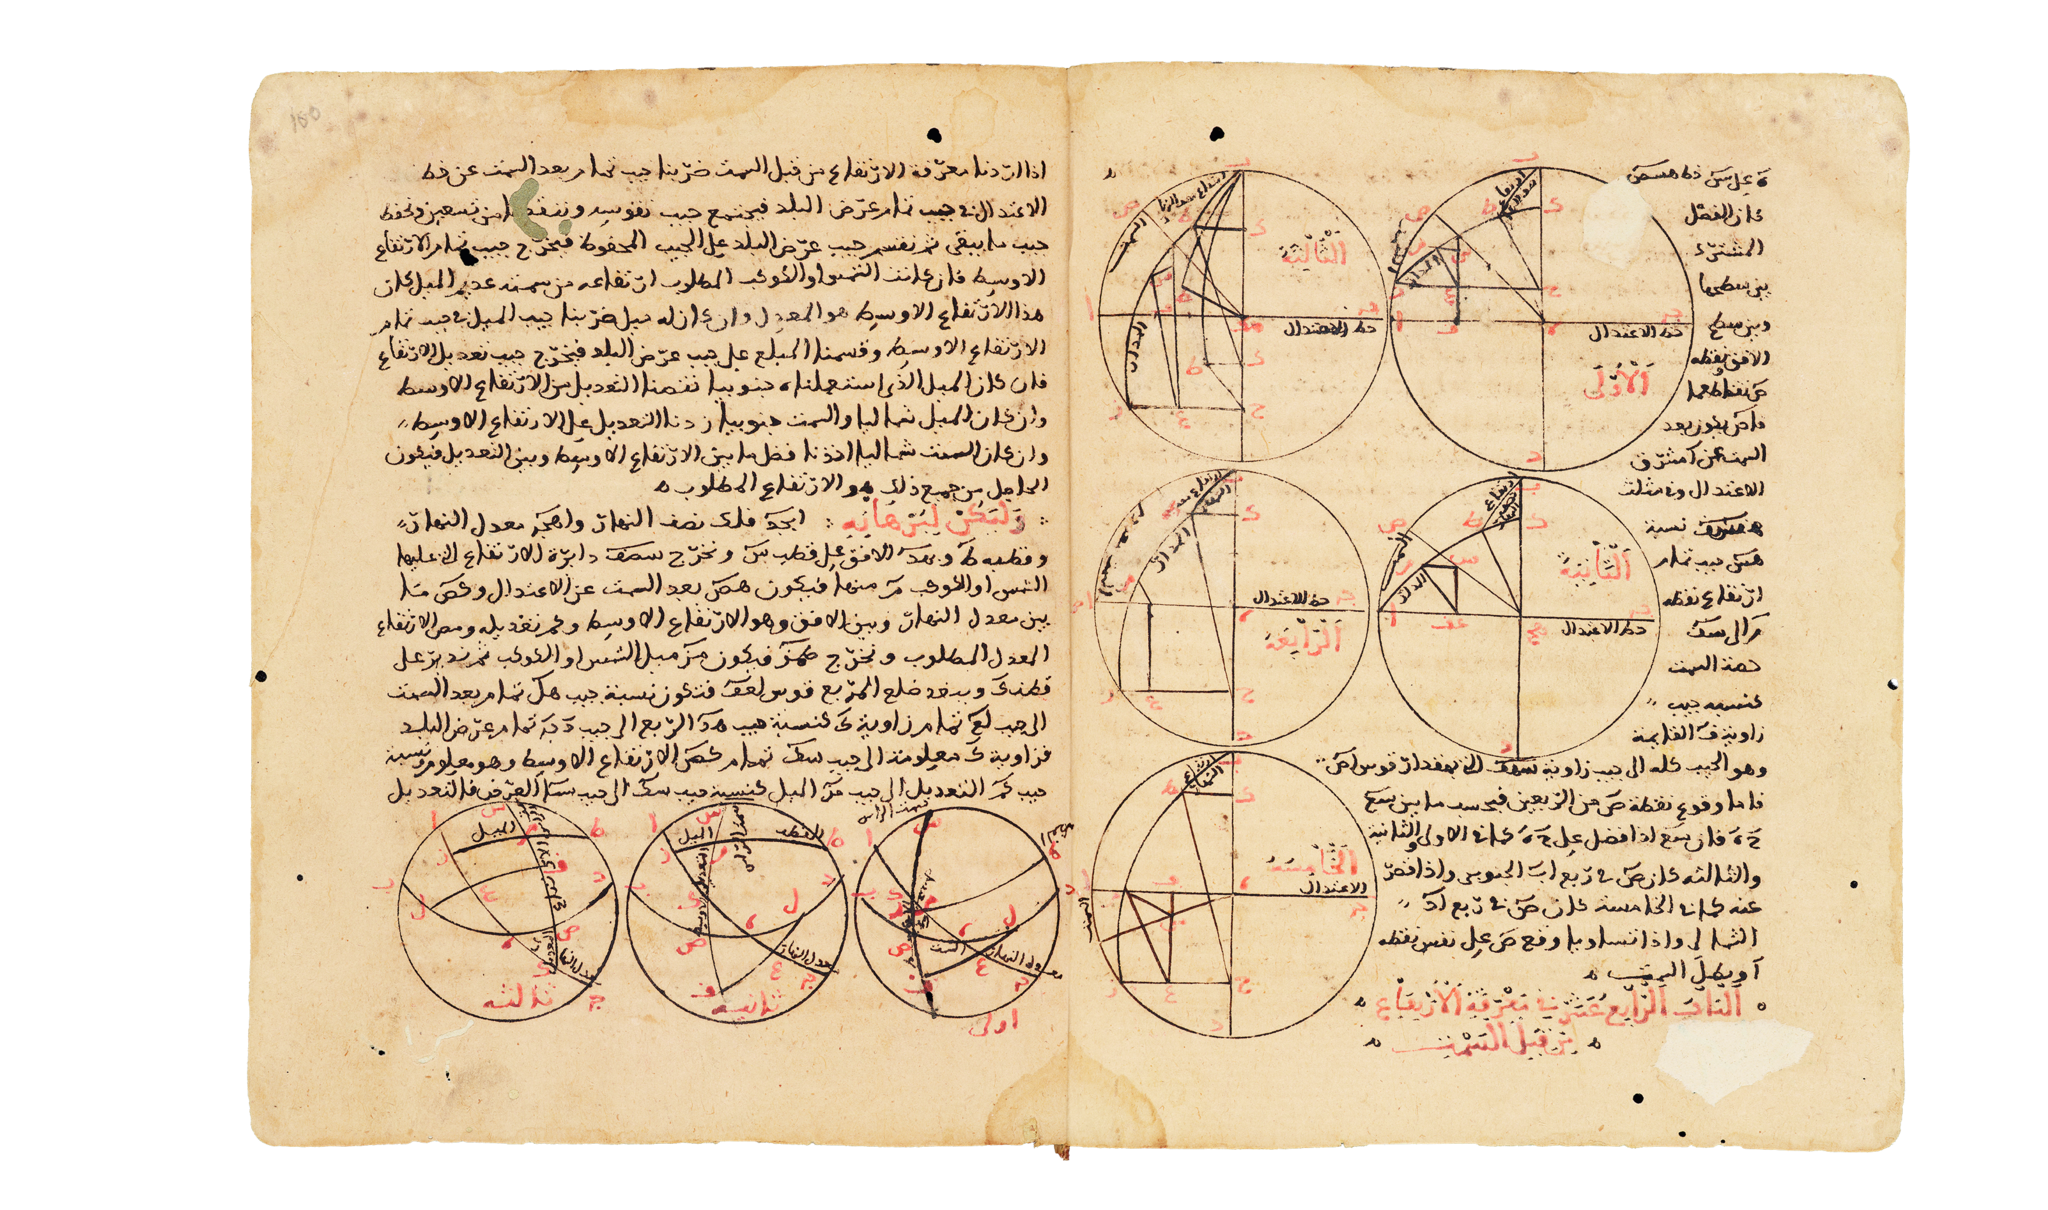 ه على سَ خط هسص
كان الفصل
المشترك
بين سطحها
وبين سطح
الافق ونقطه
ص نقاطعها
فاص يكون بعد
السمت عن آ مشرق
الاعتدال وفي مثلث
نسبة
هس جيب تمام
ارتفاع نقطه
مَ الى سف
حصة السمت
كنسبه جيب
زاوية ف القايمة
وهو الجيب كله الى جيب زاوية التى بمقدار قوس اص
فاما وقوع نقطة ص من الربعين فبحسب ما بين سع
ح ه فان سع اذا فضل على ح ه كما فى الاولى والثانية
والثالثه كان ص فى ربع اب الجنوبى واذا قصر
عنه كما فى الخامسة كان ص فى ربع اد
الشمالى واذا تساويا وقع ص على نفس نقطه
آ وبطل السمت ه
الباب الرابع عشر في معرفة الارتفاع
من قبل السمت
الاولى
خط الاعتدال
الثالثة
خط الاعتدال
الثانية
خط الاعتدال
الرابعة
خط الاعتدال
الخامسة
الاعتدال
اذا اردنا معرفة الارتفاع من قبل السمت ضربنا جيب تمام بعد السمت عن خط
الاعتدال فى جيب تمام عرض البلد فيجتمع جيب نقوسه وننقصها من تسعين ونحفظ
جيب ما يبقى ثم نقسم جيب عرض البلد على الجيب المحفوظ فيخرج جيب تمام الارتفاع
الاوسط فان كانت الشمس او الكوكب المطلوب ارتفاعه من سمته عديم الميل كان
هذا الارتفاع الاوسط هو المعدل وان كان له ميل ضربنا جيب الميل فى جيب تمام
الارتفاع الاوسط وقسمنا المبلغ على جيب عرض البلد فيخرج جيب تعديل الارتفاع
فان كان الميل الذى استعملناه جنوبيا نقصنا التعديل من الارتفاع الاوسط
وان كان الميل شماليا والسمت جنوبيا زدنا التعديل على الارتفاع الاوسط
وان كان السمت شماليا اخذنا فضل ما بين الارتفاع الاوسط وبين التعديل فيكون
الحاصل من جميع ذلك هو الارتفاع المطلوب ه
وليكن لبرهانه ابجد فلك نصف النهار واهج معدل النهار
وقطبه ط وبهد الافق على قطب س ونخرج سمصف دايرة الارتفاع التى عليها
الشمس او الكوكب م منها فيكون هص بعد السمت عن الاعتدال وكص ما
بين معدل النهار وبين الافق وهو الارتفاع الاوسط وكم تعديله ومص الارتفاع
المعدل المطلوب ونخرج طمز فيكون مز ميل الشمس او الكوكب ثم ندير على
قطب ك وببعد ضلع المربع قوس لعف فتكون نسبة جيب هل تمام بعد السمت
الى جيب لع تمام زاوية ك كنسبة جيب هد الربع الى جيب دج تمام عرض البلد
فزاوية ك معلومة الى جيب سك تمام كص الارتفاع الاوسط وهو معلوم ونسبة
جيب كم التعديل الى جيب مز الميل كنسبة جيب سك الى جيب سا العرض فالتعديل
سمت الراس
معدل النهار
السمت
اولى
القطب
الميل
معدل النهار
ثانيه
الميل
معدل النهار
ثالثه